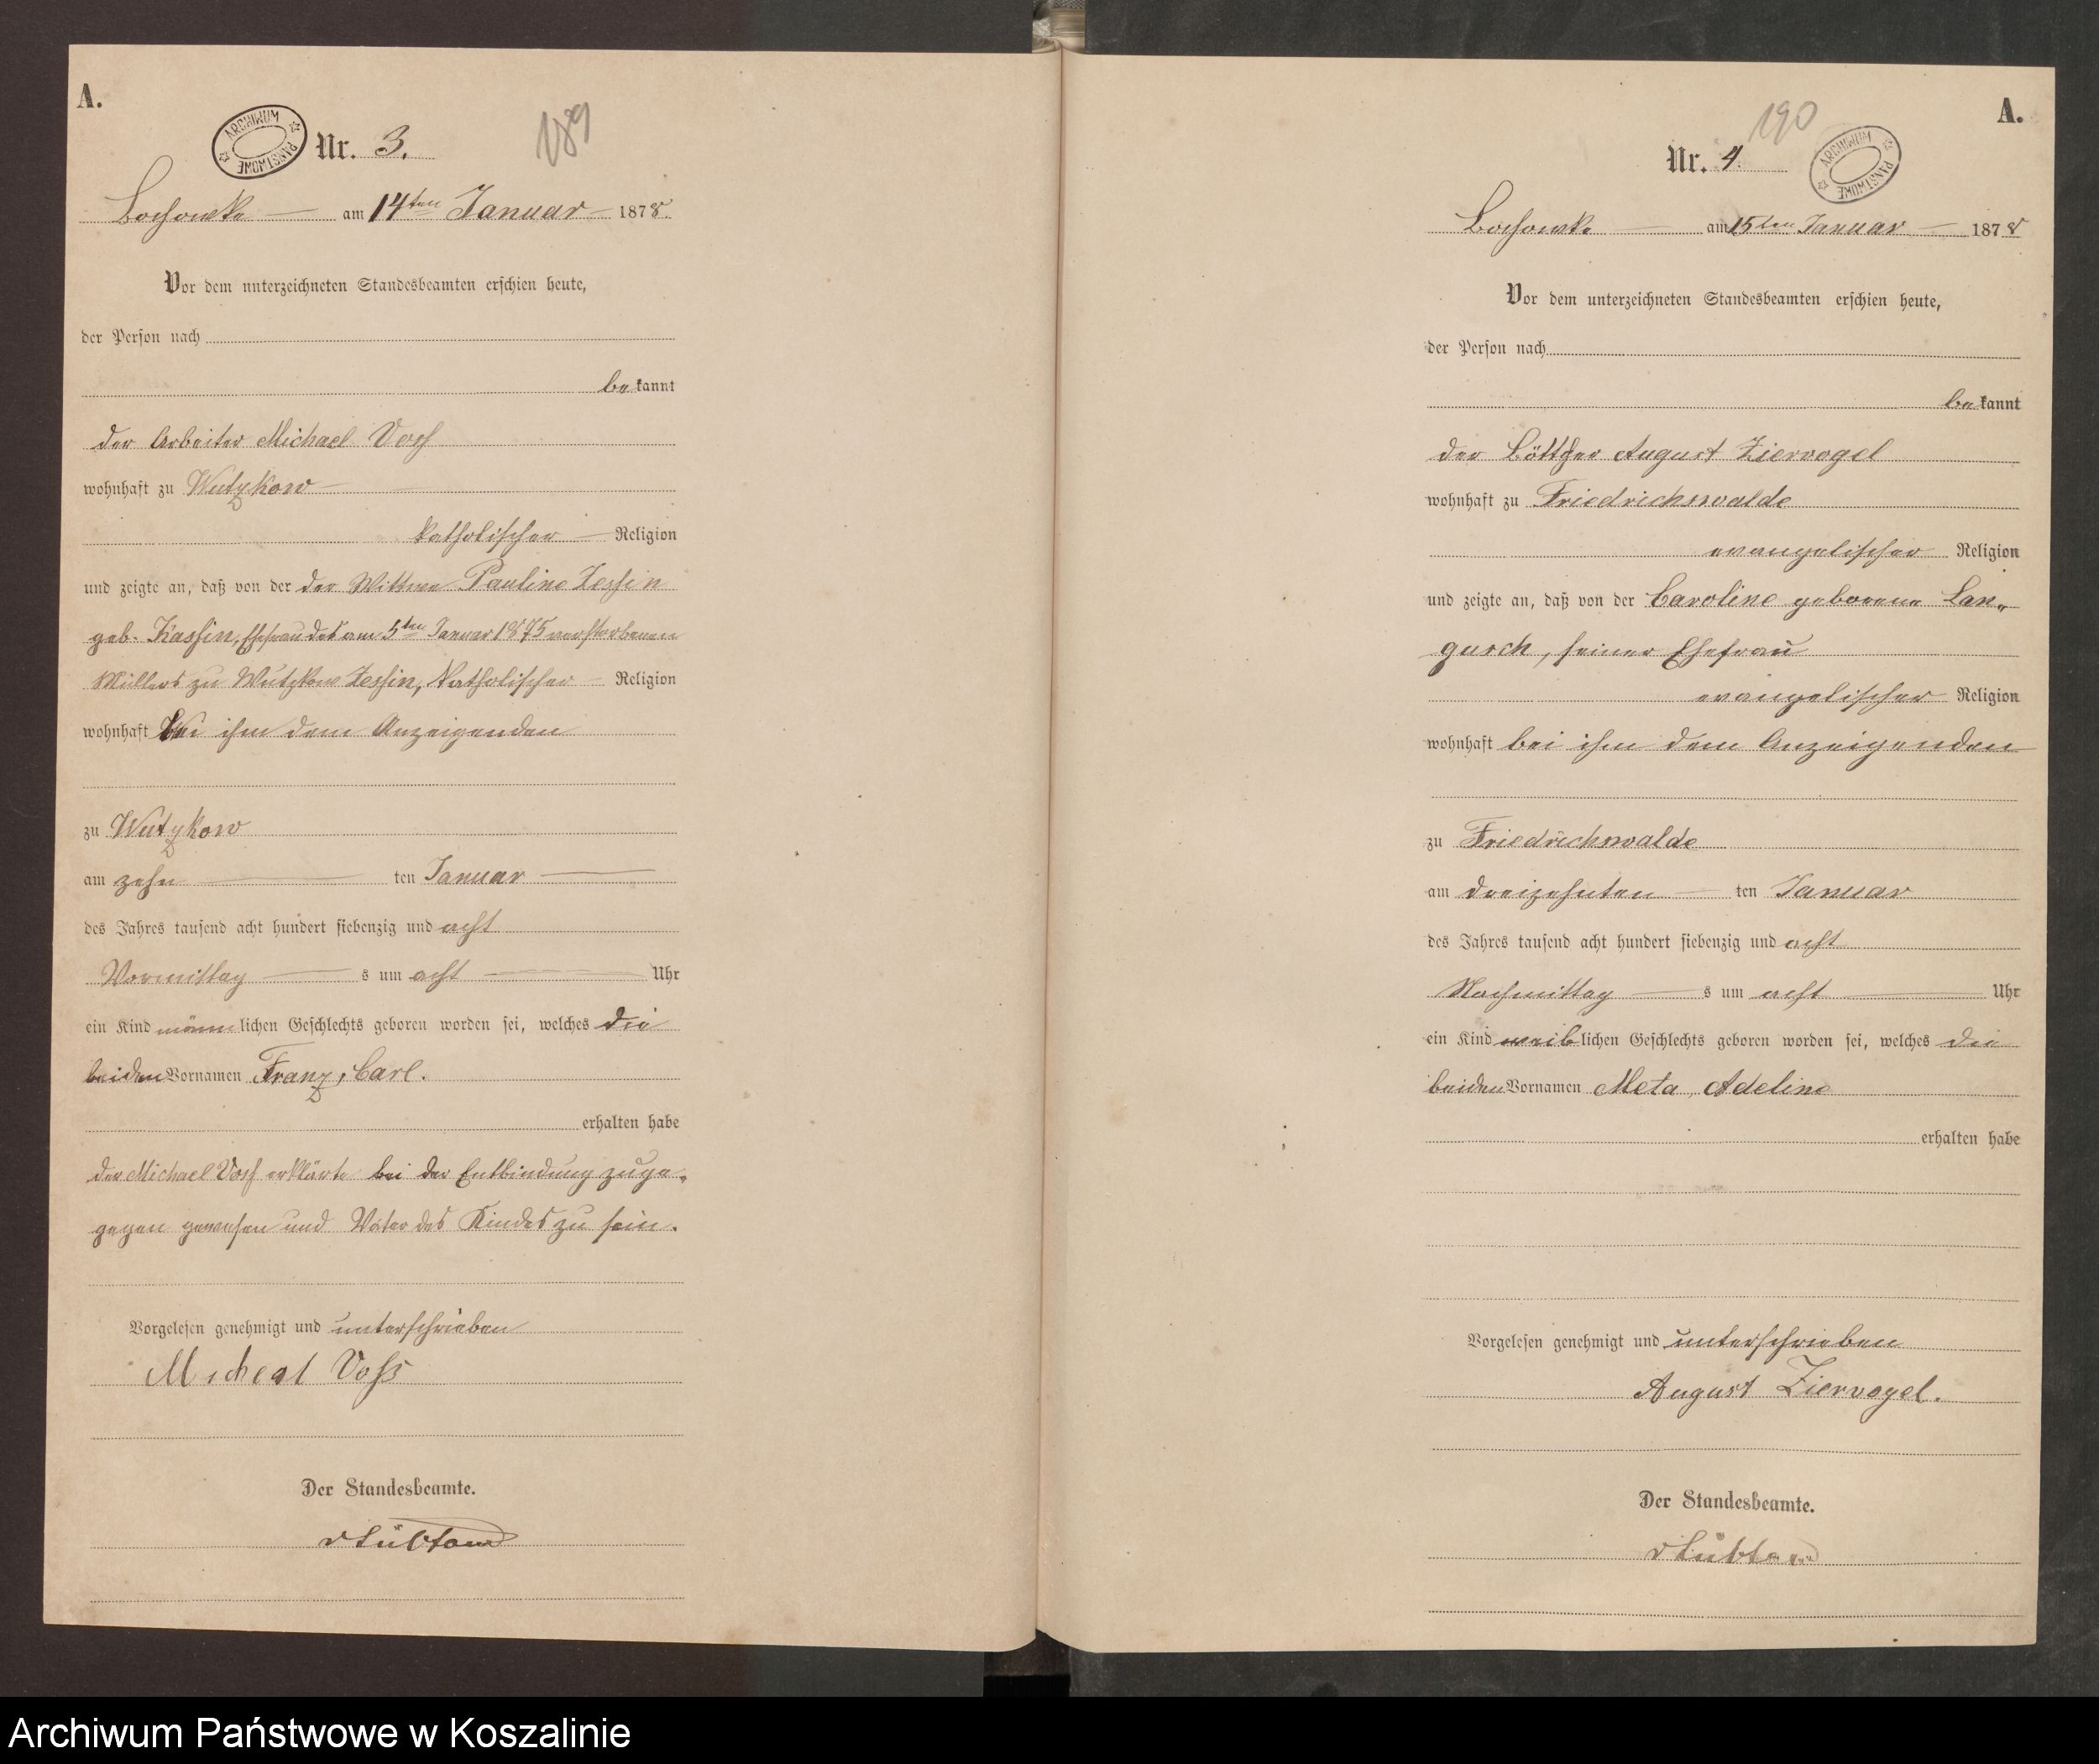 A.
ARCHIWUM PAŃSTWOWE
Nr. 3.
189
Bochowke am 14ten Januar 1878.
Vor dem unterzeichneten Standesbeamten erschien heute,
der Person nach
bekannt
der Arbeiter Michael Voss
wohnhaft zu Wutzkow
katholischer Religion
und zeigte an, daß von der der Wittwe Pauline Zessin
geb. Kassin, Ehefrau des am 5ten Januar 1875 verstorbenen
Müllers zu Wutzkow Zessin, katholischer Religion
wohnhaft bei ihm dem Anzeigenden
zu Wutzkow
am zehn ten Januar
des Jahres tausend acht hundert siebenzig und acht
Vormittag s um acht Uhr
ein Kind männlichen Geschlechts geboren worden sei, welches die
beiden Vornamen Franz, Carl.
erhalten habe
der Michael Voss erklärte bei der Entbindung zuge-
gegen gewesen und Vater des Kindes zu sein.
Vorgelesen genehmigt und unterschrieben
Micheal Voss
Der Standesbeamte.
A.
190
Nr. 4.
ARCHIWUM PAŃSTWOWE
Bochowke am 15ten Januar 1878
Vor dem unterzeichneten Standesbeamten erschien heute,
der Person nach
bekannt
der Böttcher August Ziervogel
wohnhaft zu Friedrichswalde
evangelischer Religion
und zeigte an, daß von der Caroline geborene Lan-
gusch, seiner Ehefrau
evangelischer Religion
wohnhaft bei ihm dem Anzeigenden
zu Friedrichswalde
am dreizehnten ten Januar
des Jahres tausend acht hundert siebenzig und acht
Nachmittag s um acht Uhr
ein Kind weiblichen Geschlechts geboren worden sei, welches die
beiden Vornamen Meta, Adeline
erhalten habe
Vorgelesen genehmigt und unterschrieben
August Ziervogel.
Der Standesbeamte.
Archiwum Państwowe w Koszalinie